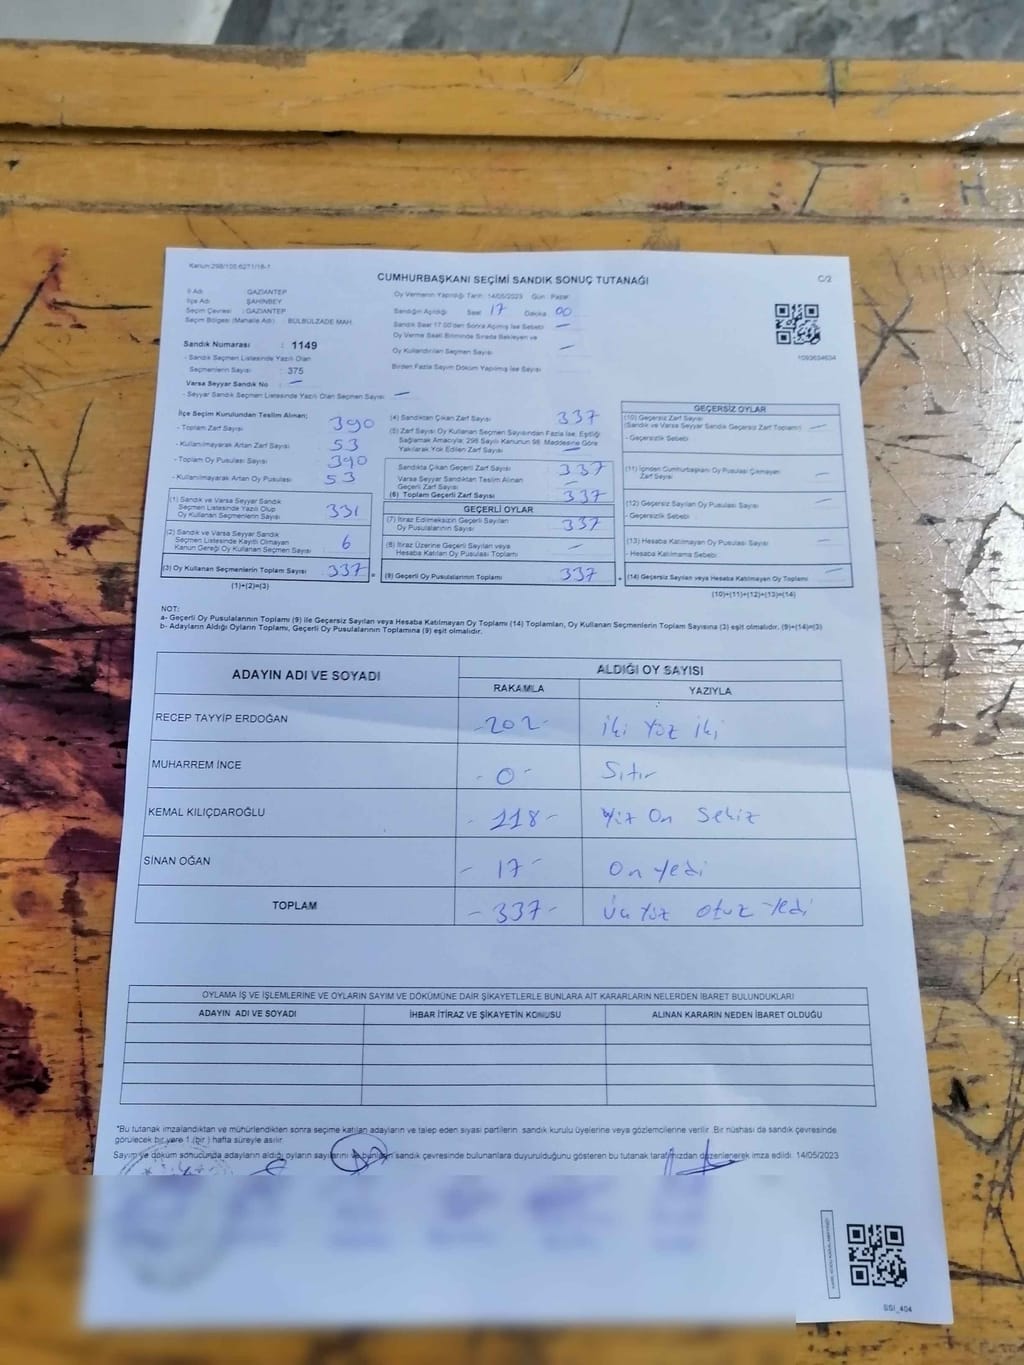 Kanun:298/105 6271/16-1
CUMHURBAŞKANI SEÇİMİ SANDIK SONUÇ TUTANAĞI
C/2
İl Adı : GAZİANTEP
İlçe Adı : ŞAHİNBEY
Seçim Çevresi : GAZİANTEP
Seçim Bölgesi (Mahalle Adı) : BÜLBÜLZADE MAH.
Sandık Numarası : 1149
- Sandık Seçmen Listesinde Yazılı Olan
Seçmenlerin Sayısı : 375
Varsa Seyyar Sandık No –
- Seyyar Sandık Seçmen Listesinde Yazılı Olan Seçmen Sayısı –
Oy Vermenin Yapıldığı Tarih: 14/05/2023 Gün: Pazar
Sandığın Açıldığı Saat 17 Dakika 00
Sandık Saat 17.00'den Sonra Açılmış İse Sebebi –
Oy Verme Saati Bitiminde Sırada Bekleyen ve
Oy Kullandırılan Seçmen Sayısı –
Birden Fazla Sayım Döküm Yapılmış İse Sayısı
1093634634
İlçe Seçim Kurulundan Teslim Alınan;
- Toplam Zarf Sayısı 390
- Kullanılmayarak Artan Zarf Sayısı 53
- Toplam Oy Pusulası Sayısı 390
- Kullanılmayarak Artan Oy Pusulası 53
(1) Sandık ve Varsa Seyyar Sandık
Seçmen Listesinde Yazılı Olup
Oy Kullanan Seçmenlerin Sayısı 331
(2) Sandık ve Varsa Seyyar Sandık
Seçmen Listesinde Kayıtlı Olmayan
Kanun Gereği Oy Kullanan Seçmen Sayısı 6
(3) Oy Kullanan Seçmenlerin Toplam Sayısı 337 =
(1)+(2)=(3)
(4) Sandıktan Çıkan Zarf Sayısı 337
(5) Zarf Sayısı Oy Kullanan Seçmen Sayısından Fazla İse, Eşitliği
Sağlamak Amacıyla; 298 Sayılı Kanunun 98. Maddesine Göre
Yakılarak Yok Edilen Zarf Sayısı –
Sandıkta Çıkan Geçerli Zarf Sayısı 337
Varsa Seyyar Sandıktan Teslim Alınan
Geçerli Zarf Sayısı –
(6) Toplam Geçerli Zarf Sayısı 337
GEÇERLİ OYLAR
(7) İtiraz Edilmeksizin Geçerli Sayılan
Oy Pusulalarının Sayısı 337
(8) İtiraz Üzerine Geçerli Sayılan veya
Hesaba Katılan Oy Pusulası Toplamı –
(9) Geçerli Oy Pusulalarının Toplamı 337 +
GEÇERSİZ OYLAR
(10) Geçersiz Zarf Sayısı
(Sandık ve Varsa Seyyar Sandık Geçersiz Zarf Toplamı) –
- Geçersizlik Sebebi
(11) İçinden Cumhurbaşkanı Oy Pusulası Çıkmayan
Zarf Sayısı –
(12) Geçersiz Sayılan Oy Pusulası Sayısı –
- Geçersizlik Sebebi
(13) Hesaba Katılmayan Oy Pusulası Sayısı –
- Hesaba Katılmama Sebebi
(14) Geçersiz Sayılan veya Hesaba Katılmayan Oy Toplamı –
(10)+(11)+(12)+(13)=(14)
NOT:
a- Geçerli Oy Pusulalarının Toplamı (9) ile Geçersiz Sayılan veya Hesaba Katılmayan Oy Toplamı (14) Toplamları, Oy Kullanan Seçmenlerin Toplam Sayısına (3) eşit olmalıdır. (9)+(14)=(3)
b- Adayların Aldığı Oyların Toplamı, Geçerli Oy Pusulalarının Toplamına (9) eşit olmalıdır.
ADAYIN ADI VE SOYADI ALDIĞI OY SAYISI
RAKAMLA YAZIYLA
RECEP TAYYİP ERDOĞAN -202- iki Yüz iki
MUHARREM İNCE -0- Sıfır
KEMAL KILIÇDAROĞLU -118- Yüz On Sekiz
SİNAN OĞAN -17- On Yedi
TOPLAM -337- Üç Yüz otuz Yedi
OYLAMA İŞ VE İŞLEMLERİNE VE OYLARIN SAYIM VE DÖKÜMÜNE DAİR ŞİKAYETLERLE BUNLARA AİT KARARLARIN NELERDEN İBARET BULUNDUKLARI
ADAYIN ADI VE SOYADI İHBAR İTİRAZ VE ŞİKAYETİN KONUSU ALINAN KARARIN NEDEN İBARET OLDUĞU
*Bu tutanak imzalandıktan ve mühürlendikten sonra seçime katılan adayların ve talep eden siyasi partilerin sandık kurulu üyelerine veya gözlemcilerine verilir. Bir nüshası da sandık çevresinde
görülecek bir yere 1 (bir) hafta süreyle asılır.
Sayım ve döküm sonucunda adayların aldığı oyların sayılarını ve bunların sandık çevresinde bulunanlara duyurulduğunu gösteren bu tutanak tarafımızdan düzenlenerek imza edildi. 14/05/2023
SSI_404